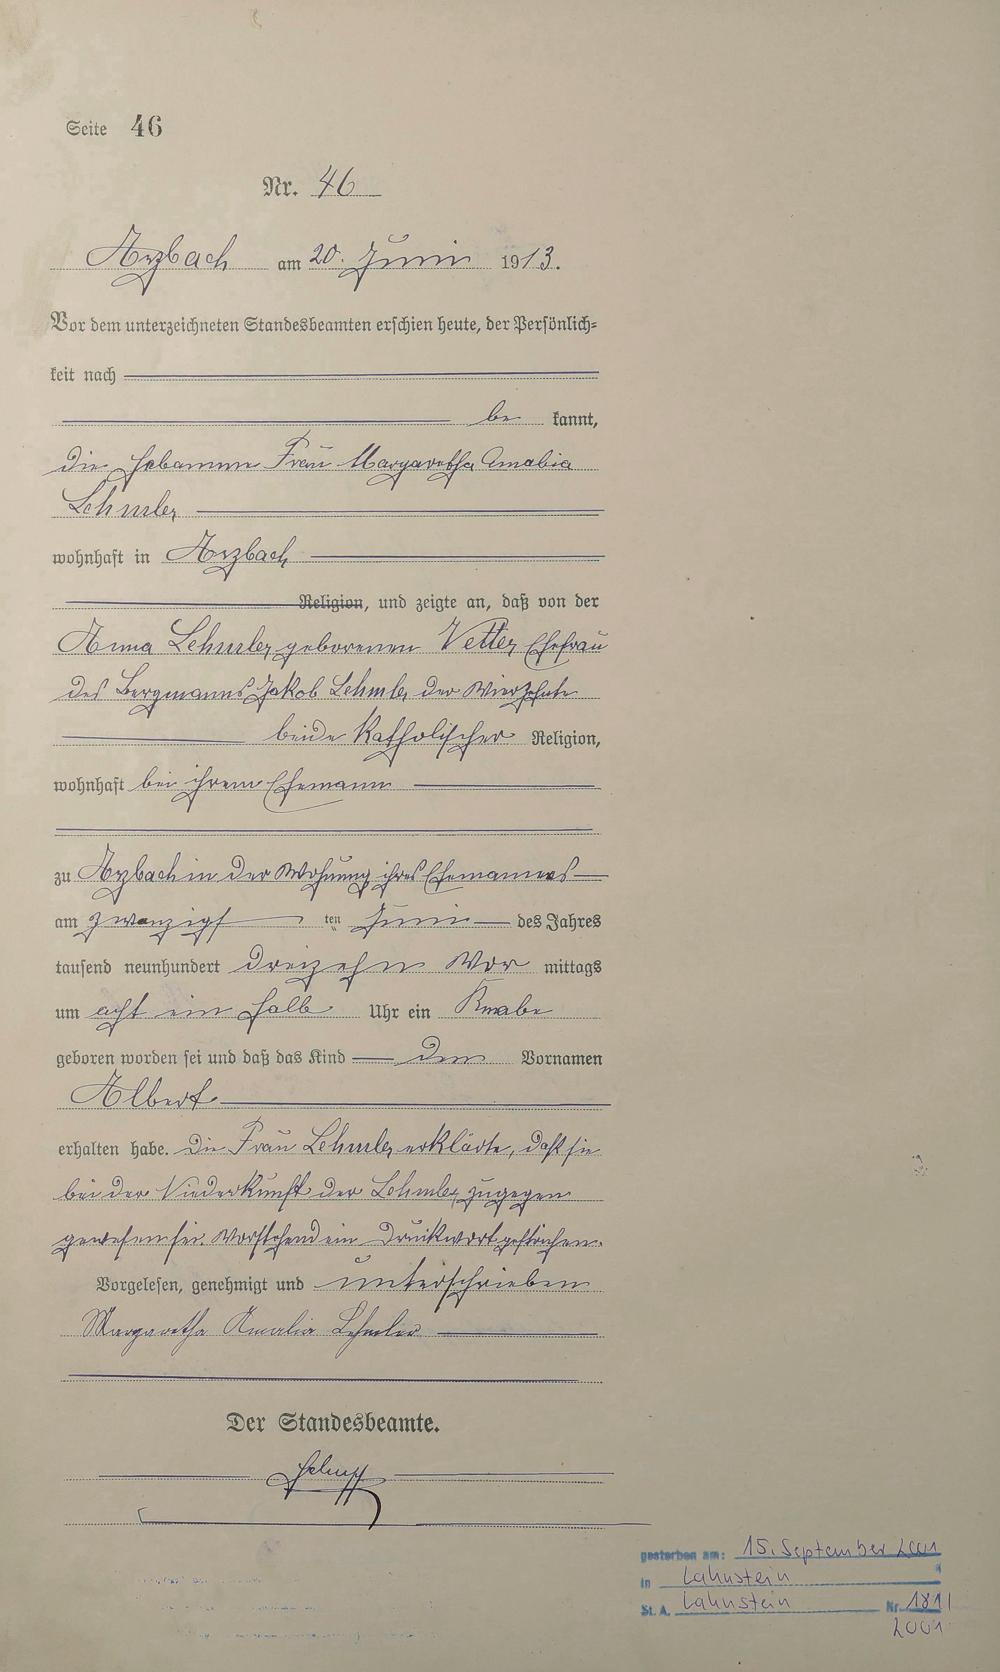 Seite 46
Nr. 46
Arzbach am 20. Juni 1913.
Vor dem unterzeichneten Standesbeamten erschien heute, der Persönlich=
keit nach
be kannt,
die Hebamme Frau Margaretha Amalia
Lehmler
wohnhaft in Arzbach
Religion, und zeigte an, daß von der
Anna Lehmler, geborenen Vetter, Ehefrau
des Bergmanns Jakob Lehmler der Vierzehnte
beide katholischer Religion,
wohnhaft bei ihrem Ehemann
zu Arzbach in der Wohnung ihres Ehemannes
am zwanzigsten Juni des Jahres
tausend neunhundert dreizehn Vor mittags
um acht ein halb Uhr ein Knabe
geboren worden sei und daß das Kind den Vornamen
Albert
erhalten habe. Die Frau Lehmler erklärte, daß sie
bei der Niederkunft der Lehmler zugegen
gewesen sei. Vorstehend ein Druckwort gestrichen.
Vorgelesen, genehmigt und unterschrieben
Margaretha Amalia Lehmler
Der Standesbeamte.
gestorben am: 15. September 2001
in Lahnstein
St. A. Lahnstein Nr. 181/
2001